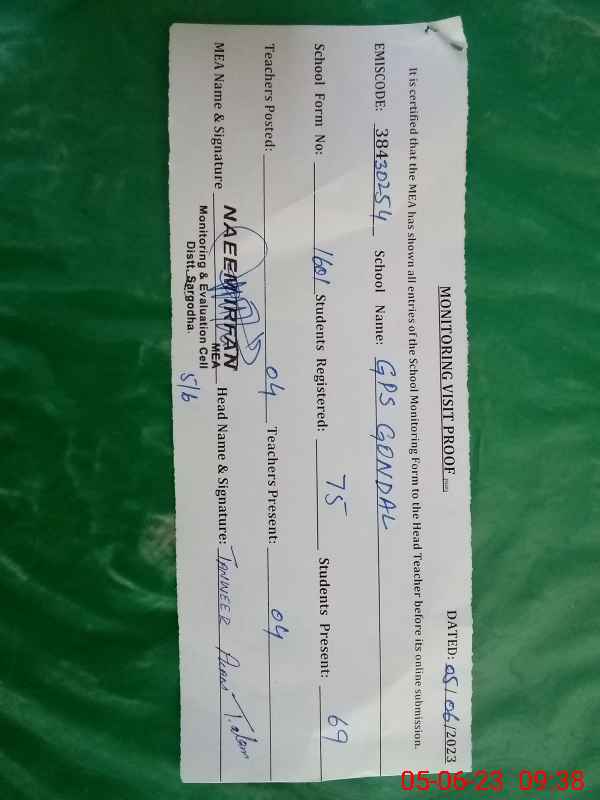 MONITORING VISIT PROOF DATED: 05/06/2023
It is certified that the MEA has shown all entries of the School Monitoring Form to the Head Teacher before its online submission.
EMISCODE: 38430254 School Name: GPS GONDAL
School Form No: 1601 Students Registered: 75 Students Present: 69
Teachers Posted: 04 Teachers Present: 04
MEA Name & Signature NAEEM IRFAN Head Name & Signature: TANVEER
MEA
Monitoring & Evaluation Cell
Distt. Sargodha.
5/6
05-06-23 09:38